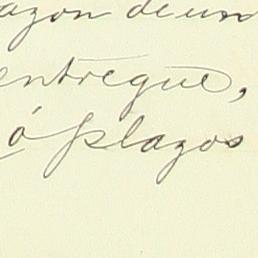 azon de un
entregue,
ó plazos